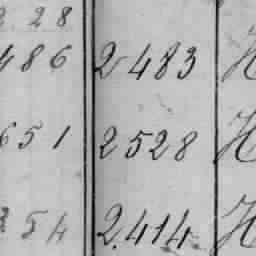 2 2 8
486 2483 H
651 2528 H
254 2.414 H